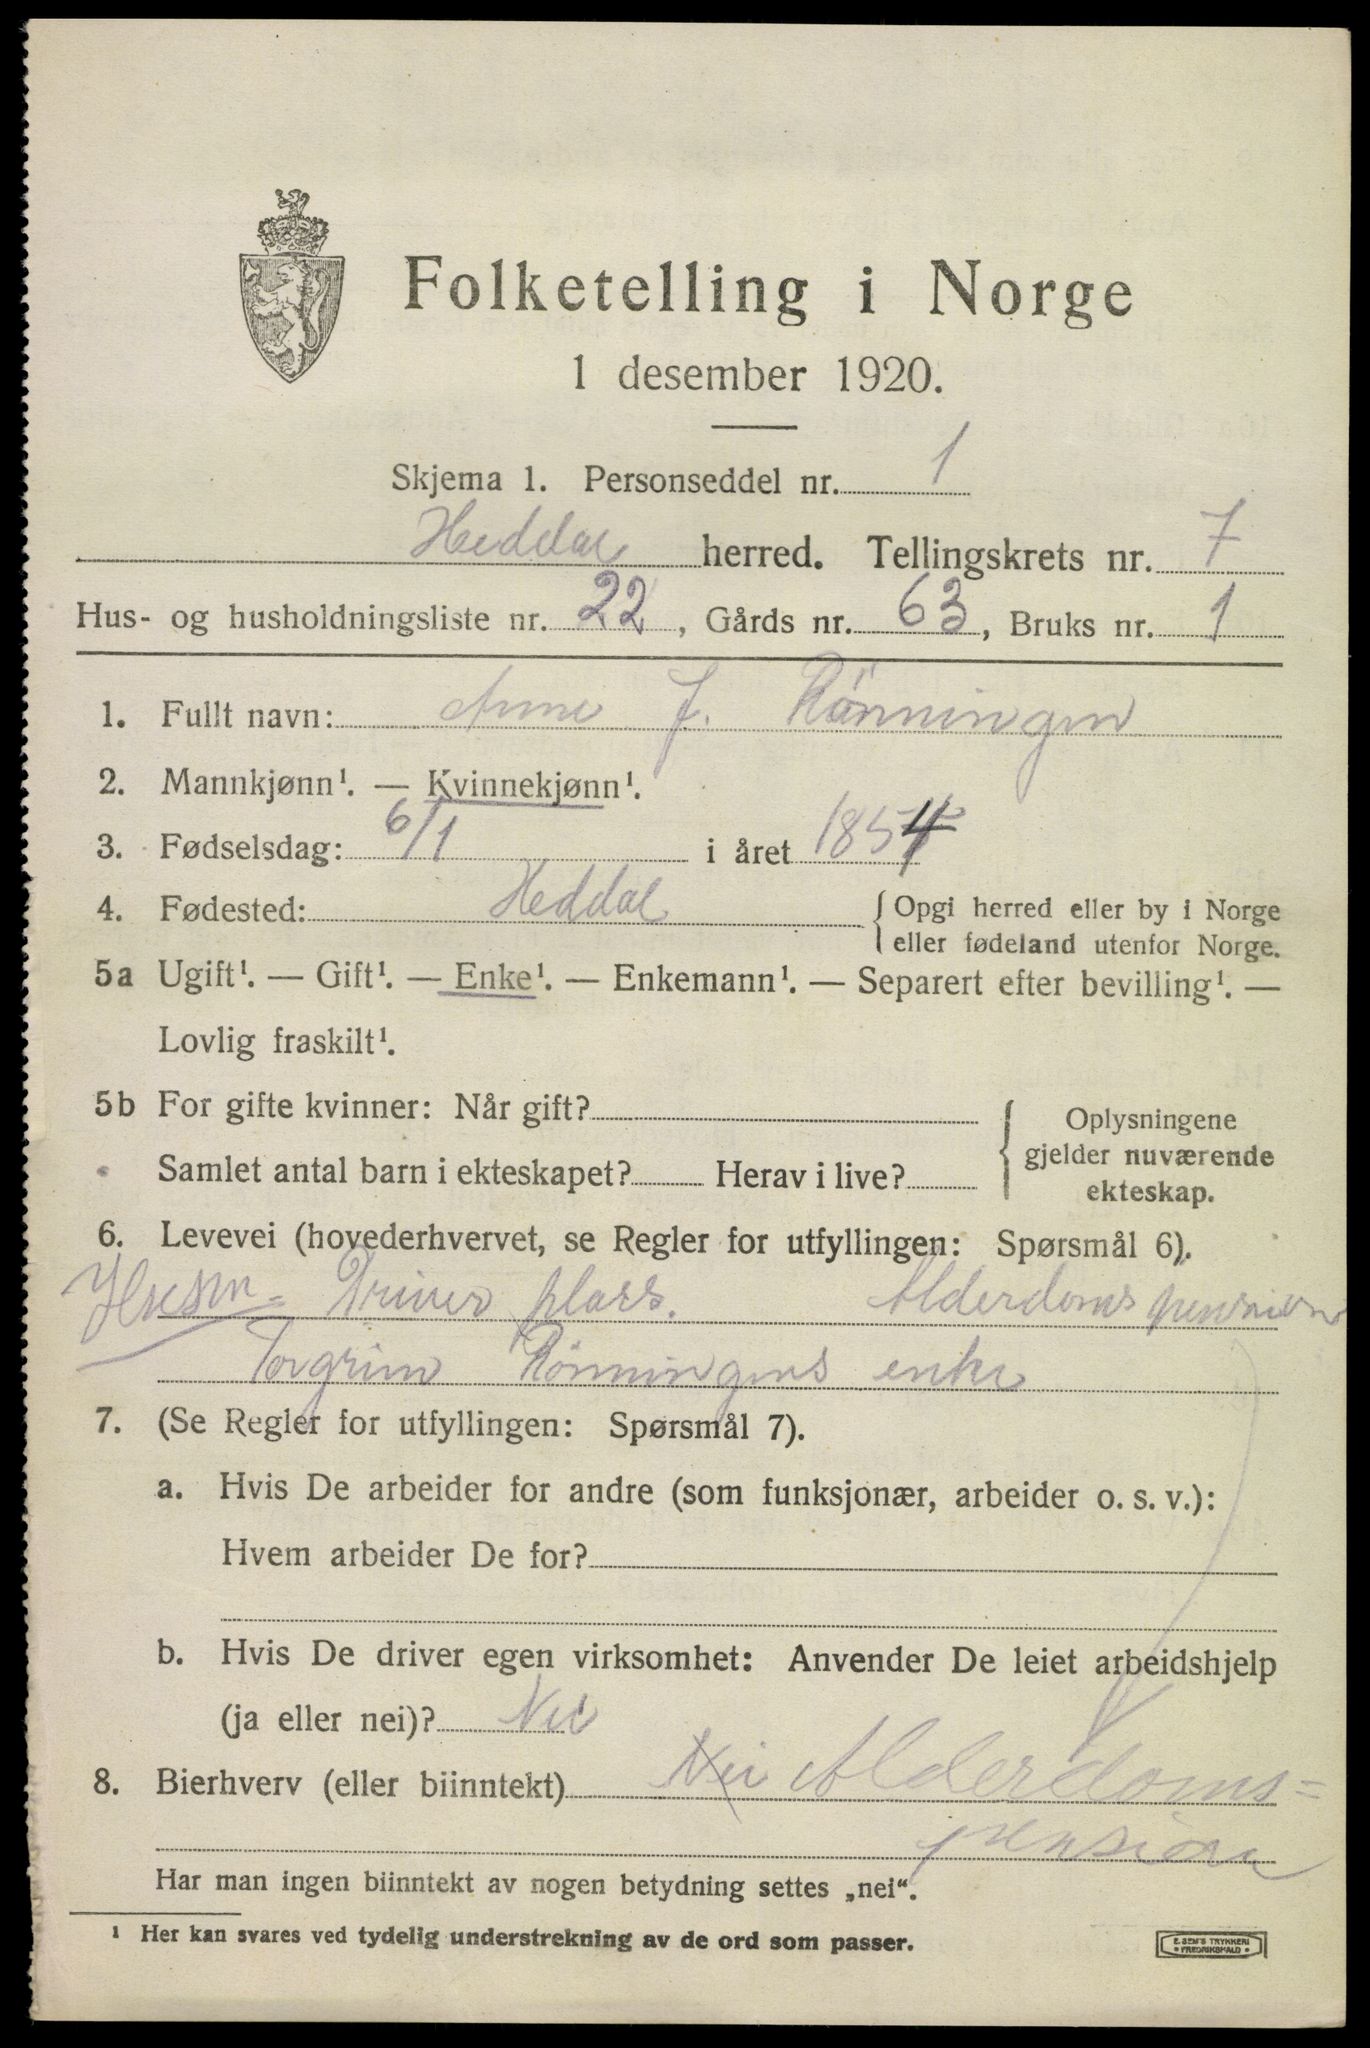 Folketelling i Norge
1 desember 1920.
Skjema 1. Personseddel nr. 1
Heddal herred. Tellingskrets nr. 7
Hus- og husholdningsliste nr. 22, Gårds nr. 63, Bruks nr. 1
1. Fullt navn: Anne J. Rönningen
2. Mannkjønn¹. — Kvinnekjønn¹.
3. Fødselsdag: 6/1 i året 1854
4. Fødested: Heddal { Opgi herred eller by i Norge
eller fødeland utenfor Norge.
5a Ugift¹. — Gift¹. — Enke¹. — Enkemann¹. — Separert efter bevilling¹. —
Lovlig fraskilt¹.
5b For gifte kvinner: Når gift?
Samlet antal barn i ekteskapet? Herav i live?
{ Oplysningene
gjelder nuværende
ekteskap.
6. Levevei (hovederhvervet, se Regler for utfyllingen: Spørsmål 6).
Driver plass. Alderdoms pension
Torgrim Rönningens enke
7. (Se Regler for utfyllingen: Spørsmål 7).
a. Hvis De arbeider for andre (som funksjonær, arbeider o. s. v.):
Hvem arbeider De for?
b. Hvis De driver egen virksomhet: Anvender De leiet arbeidshjelp
(ja eller nei)? Nei
8. Bierhverv (eller biinntekt) Nei Alderdoms=
pension
Har man ingen biinntekt av nogen betydning settes „nei“.
¹ Her kan svares ved tydelig understrekning av de ord som passer.
E. SEM'S TRYKKERI
• FREDRIKSHALD •